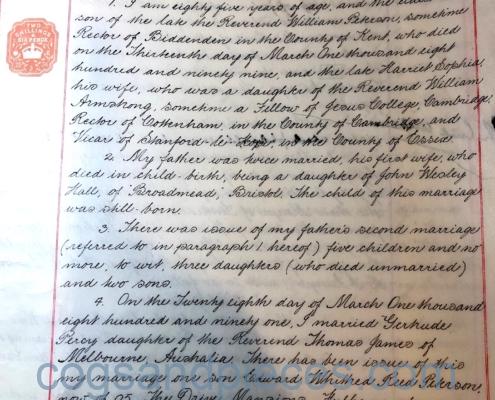 TWO
SHILLINGS
SIX PENCE
1. I am eighty five years of age, and the eldest
son of the late the Reverend William Peterson, sometime
Rector of Biddenden in the County of Kent, who died
on the Thirteenth day of March One thousand eight
hundred and ninety nine, and the late Harriet Sophia,
his wife, who was a daughter of the Reverend William
Armstrong, sometime a Fellow of Jesus College, Cambridge,
Rector of Cottenham, in the County of Cambridge, and
Vicar of Stanford-le-Hope, in the County of Essex.
2. My father was twice married, his first wife, who
died in child-birth, being a daughter of John Wesley
Hall, of Broadmead, Bristol. The child of this marriage
was still-born.
3. There was issue of my father's second marriage
(referred to in paragraph 1 hereof) five children and no
more, to wit, three daughters (who died unmarried)
and two sons.
4. On the Twenty eighth day of March One thousand
eight hundred and ninety one, I married Gertrude
Percy daughter of the Reverend Thomas James of
Melbourne, Australia. There has been issue of this
my marriage one son Edward Whitred Reed Peterson,
now of 25, The Drive Mansions,
cogsandpieces.com